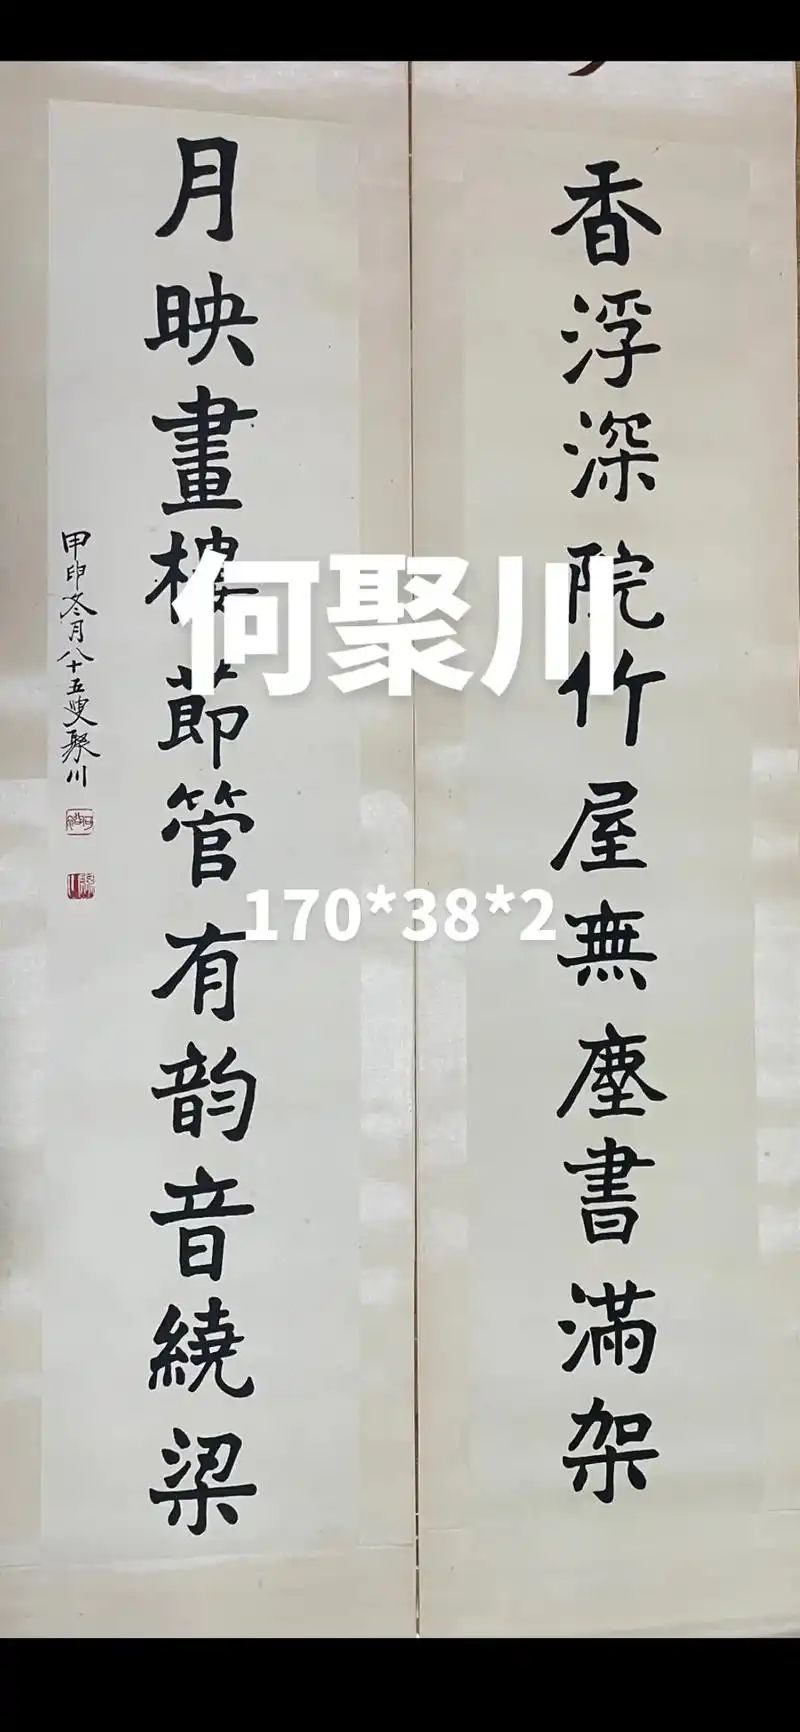 香浮深院竹屋無塵書滿架
月映畫樓莭管有韵音繞梁
甲冬月八十五叟聚川
何聚川
170*38*2